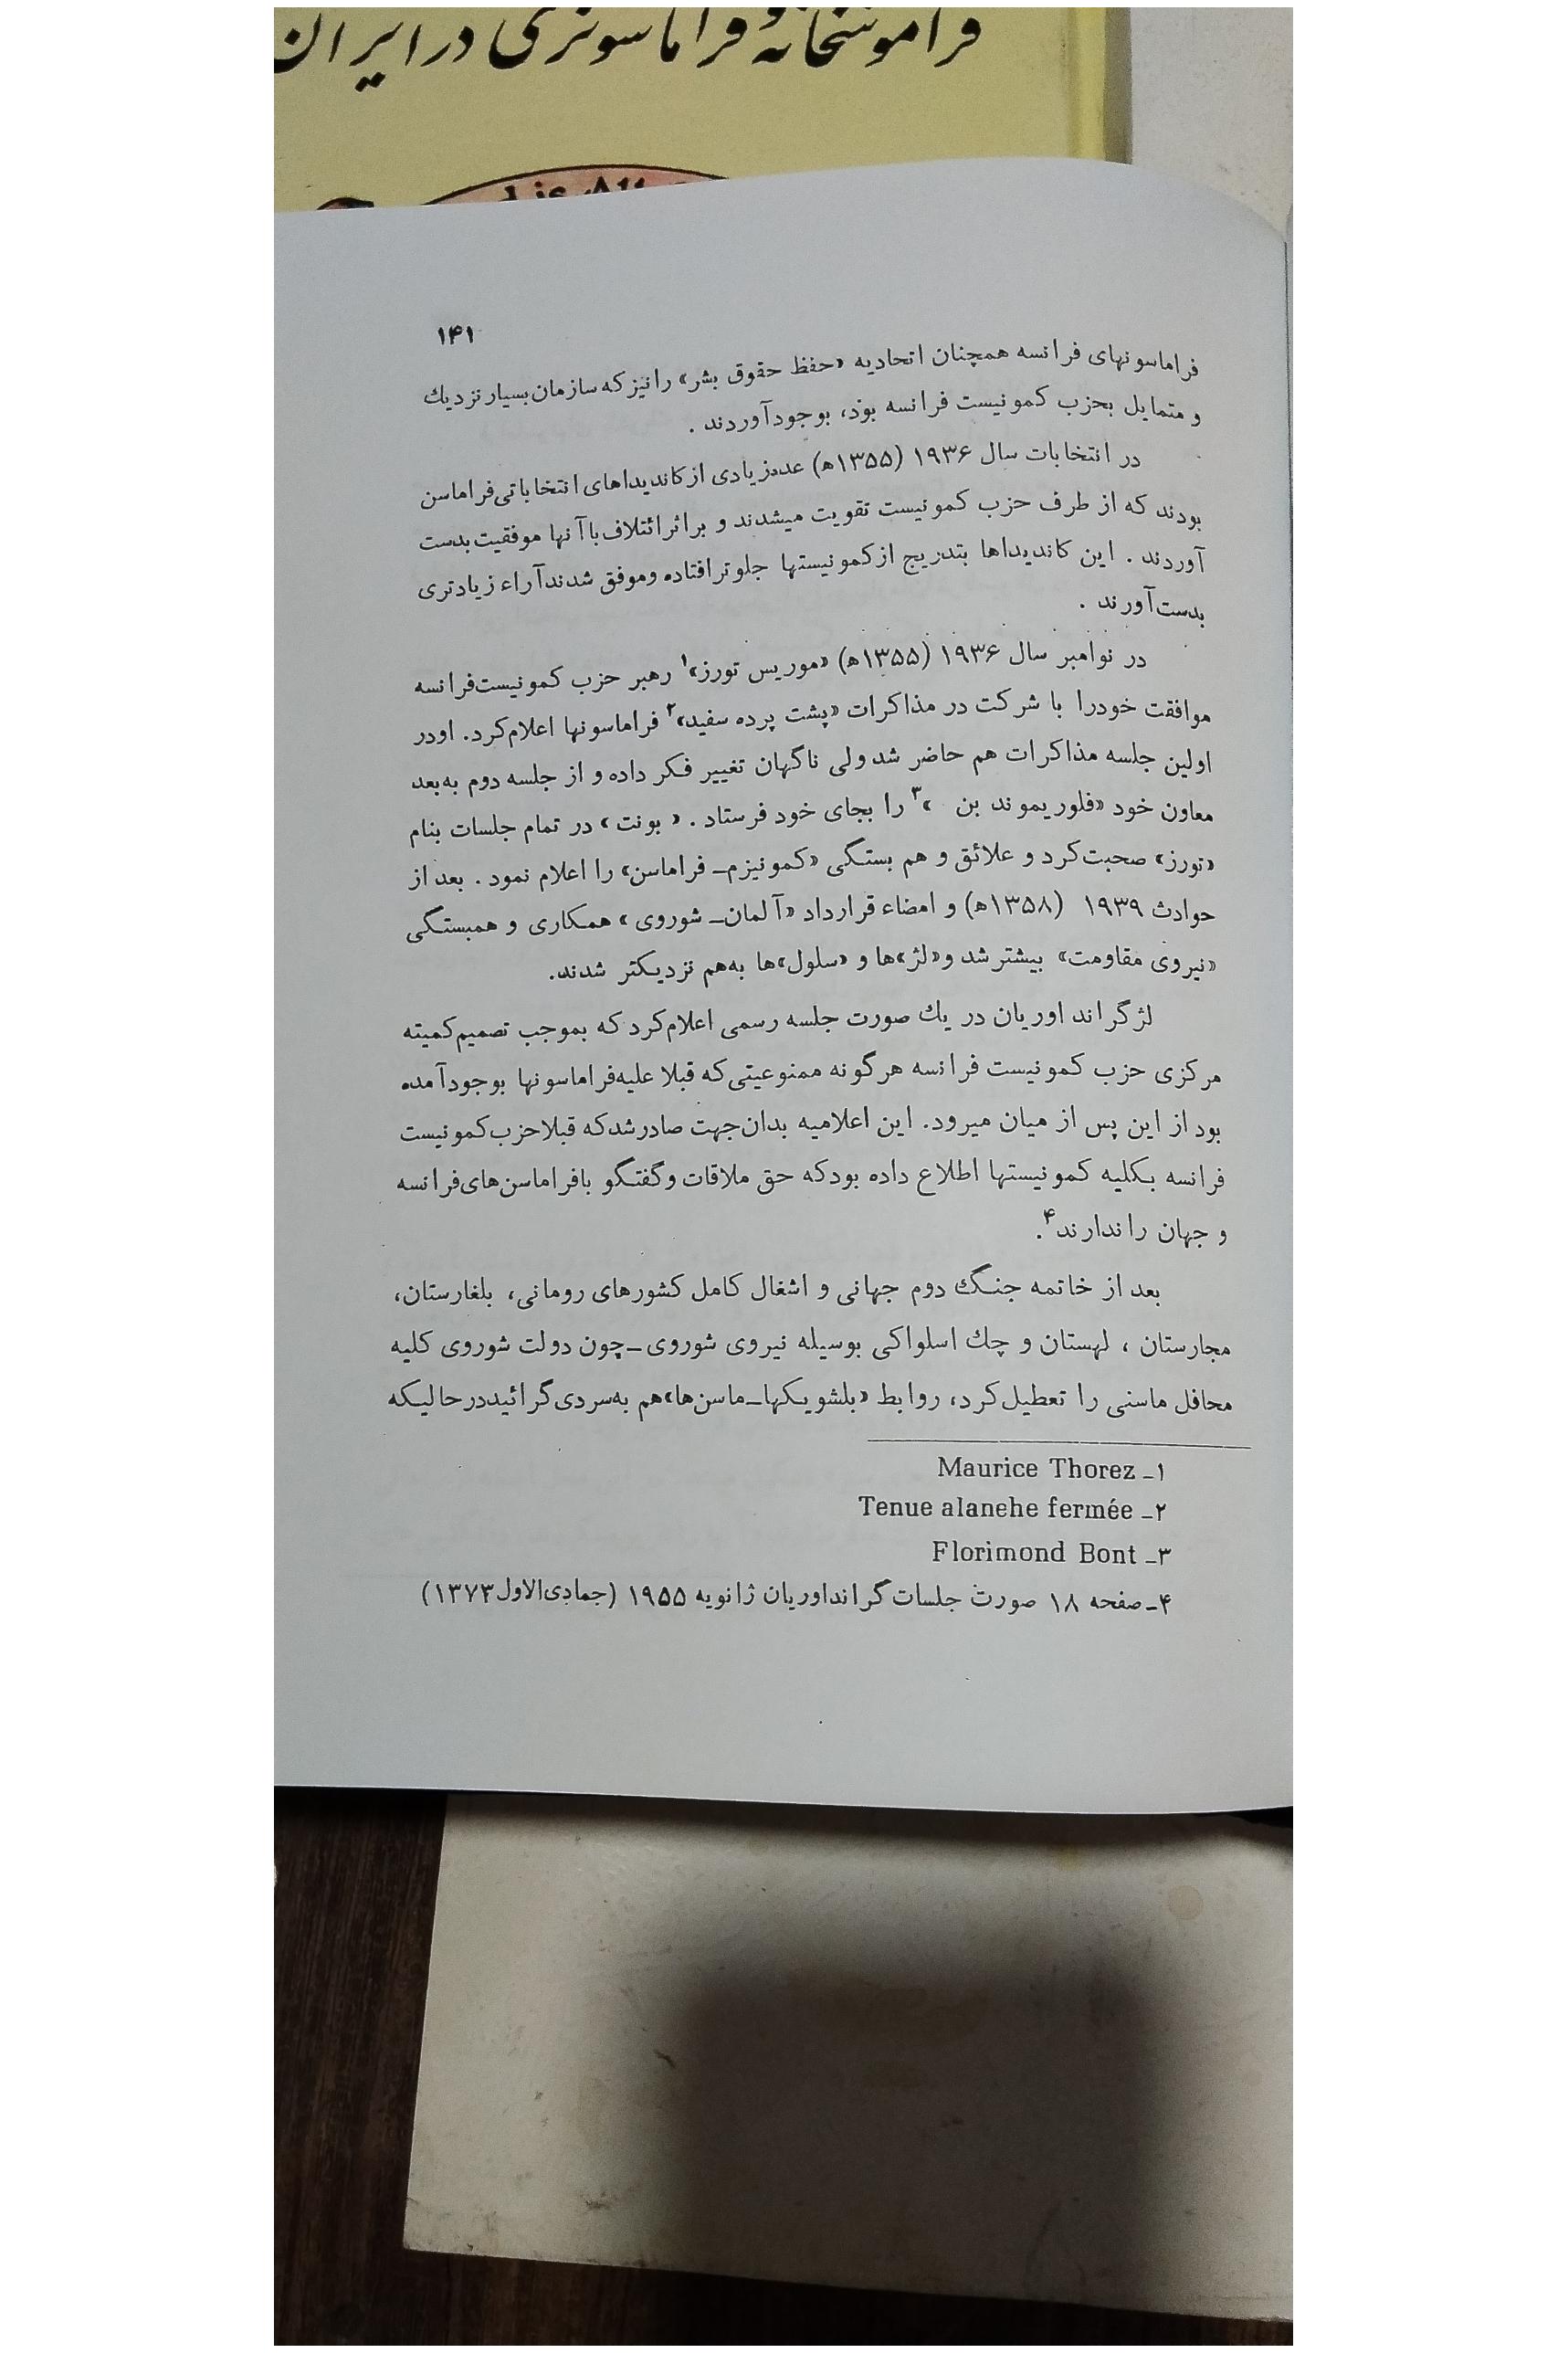 فراموشخانه و فراماسونری در ایران
۱۴۱
فراماسونهای فرانسه همچنان اتحادیه «حفظ حقوق بشر» را نیز که سازمان بسیار نزدیك
و متمایل بحزب کمونیست فرانسه بود، بوجود آوردند .
در انتخابات سال ۱۹۳۶ (۱۳۵۵ه) عده زیادی از کاندیداهای انتخاباتی فراماسن
بودند که از طرف حزب کمونیست تقویت میشدند و بر اثر ائتلاف با آنها موفقیت بدست
آوردند . این کاندیداها بتدریج از کمونیستها جلوتر افتاده و موفق شدند آراء زیادتری
بدست آورند .
در نوامبر سال ۱۹۳۶ (۱۳۵۵ه) «موریس تورز»۱ رهبر حزب کمونیست فرانسه
موافقت خودرا با شرکت در مذاکرات «پشت پرده سفید»۲ فراماسونها اعلام کرد. او در
اولین جلسه مذاکرات هم حاضر شد ولی ناگهان تغییر فکر داده و از جلسه دوم به بعد
معاون خود «فلوریموند بن »۳ را بجای خود فرستاد . « بونت » در تمام جلسات بنام
«تورز» صحبت کرد و علائق و هم بستگی «کمونیزم ـ فراماسن» را اعلام نمود . بعد از
حوادث ۱۹۳۹ (۱۳۵۸ه) و امضاء قرارداد «آلمان ـ شوروی » همکاری و همبستگی
«نیروی مقاومت» بیشتر شد و «لژ»ها و «سلول»ها به هم نزدیکتر شدند.
لژ گراند اوریان در یك صورت جلسه رسمی اعلام کرد که بموجب تصمیم کمیته
مرکزی حزب کمونیست فرانسه هرگونه ممنوعیتی که قبلا علیه فراماسونها بوجود آمده
بود از این پس از میان میرود. این اعلامیه بدان جهت صادر شد که قبلا حزب کمونیست
فرانسه بکلیه کمونیستها اطلاع داده بود که حق ملاقات و گفتگو با فراماسن های فرانسه
و جهان را ندارند۴.
بعد از خاتمه جنگ دوم جهانی و اشغال کامل کشورهای رومانی، بلغارستان،
مجارستان ، لهستان و چك اسلواکی بوسیله نیروی شوروی ـ چون دولت شوروی کلیه
محافل ماسنی را تعطیل کرد، روابط «بلشویکها ـ ماسن ها» هم به سردی گرائید در حالیکه
۱ـ Maurice Thorez
۲ـ Tenue alanehe fermée
۳ـ Florimond Bont
۴ـ صفحه ۱۸ صورت جلسات گراند اوریان ژانویه ۱۹۵۵ (جمادی الاول ۱۳۷۳)